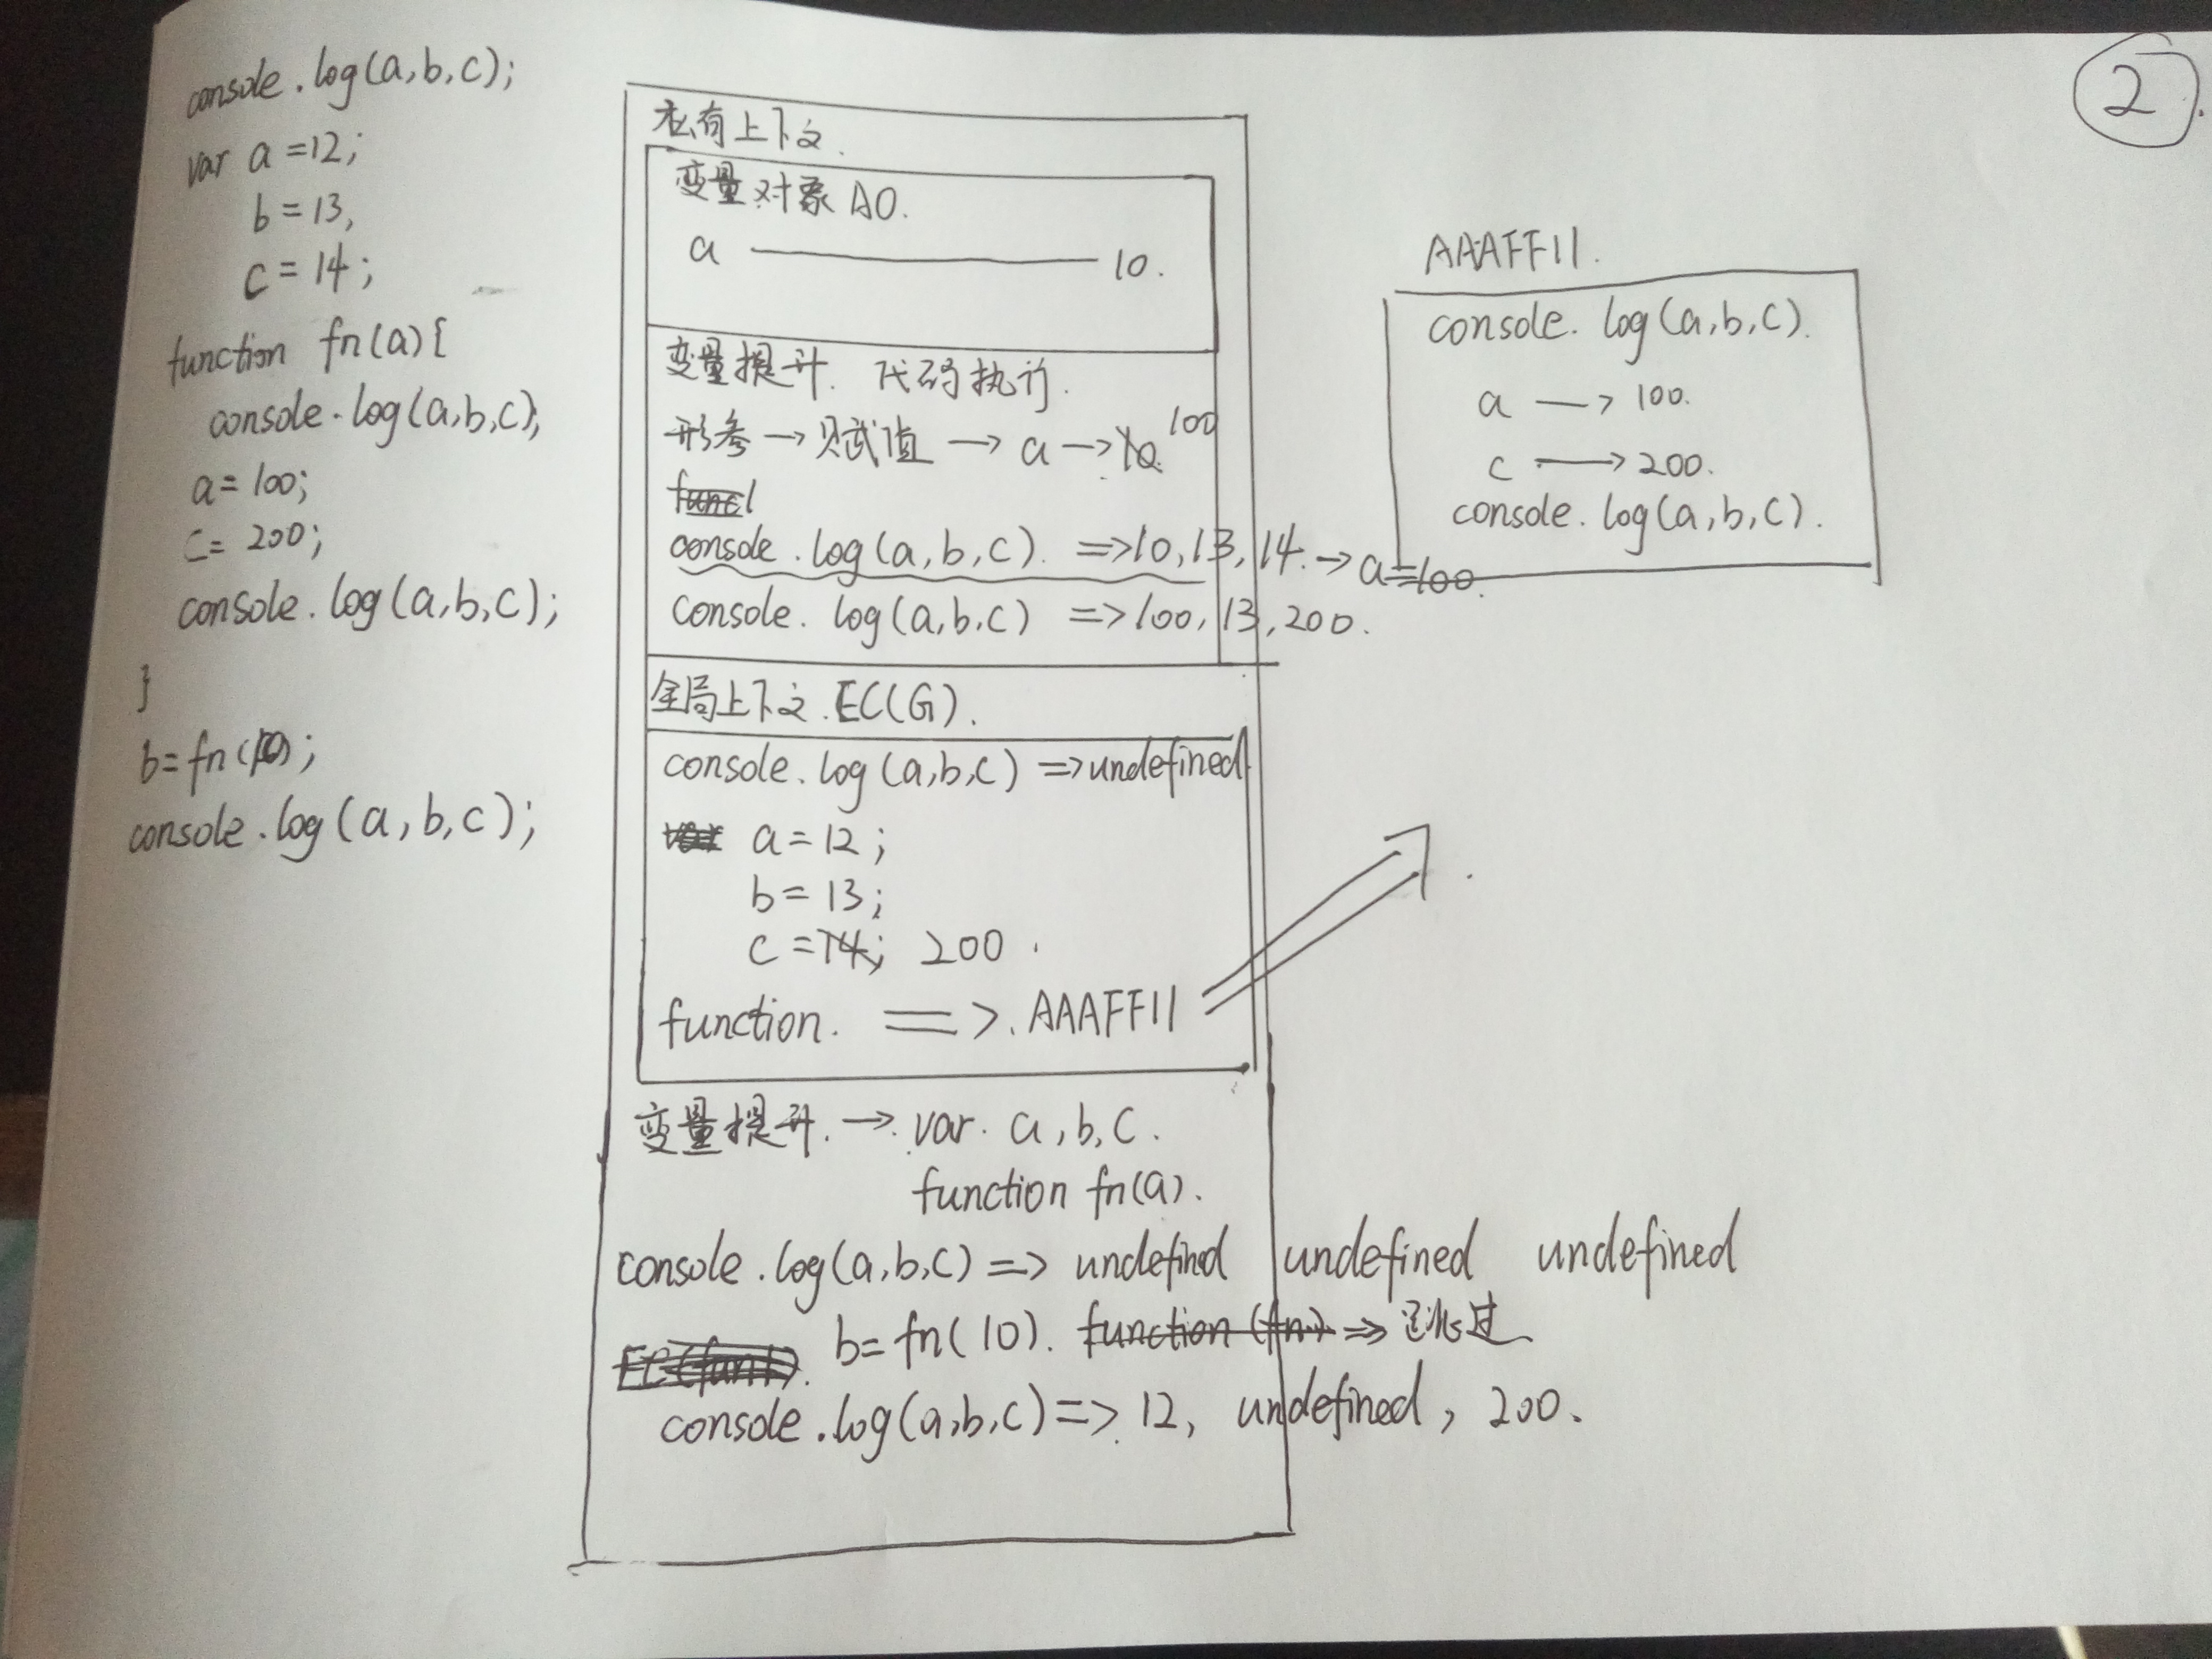 console.log(a,b,c);
var a=12;
b=13,
c=14;
function fn(a){
console.log(a,b,c);
a=100;
c=200;
console.log(a,b,c);
}
b=fn(10);
console.log(a,b,c);
私有上下文.
变量对象AO.
a —— 10.
变量提升. 代码执行.
形参→赋值→a→10. 100
func
console.log(a,b,c). =>10,13,14.→a=100.
console.log(a,b,c) =>100,13,200.
全局上下文.EC(G).
console.log(a,b,c)=>undefined
var a=12;
b=13;
c=14; 200.
function. =>.AAAFF11
变量提升.→.var. a,b,c.
function fn(a).
console.log(a,b,c)=> undefined undefined undefined
b=fn(10). function(fn)=>跳过
console.log(a,b,c)=>.12, undefined, 200.
AAAFF11.
console.log(a,b,c).
a→100.
c→200.
console.log(a,b,c).
2.